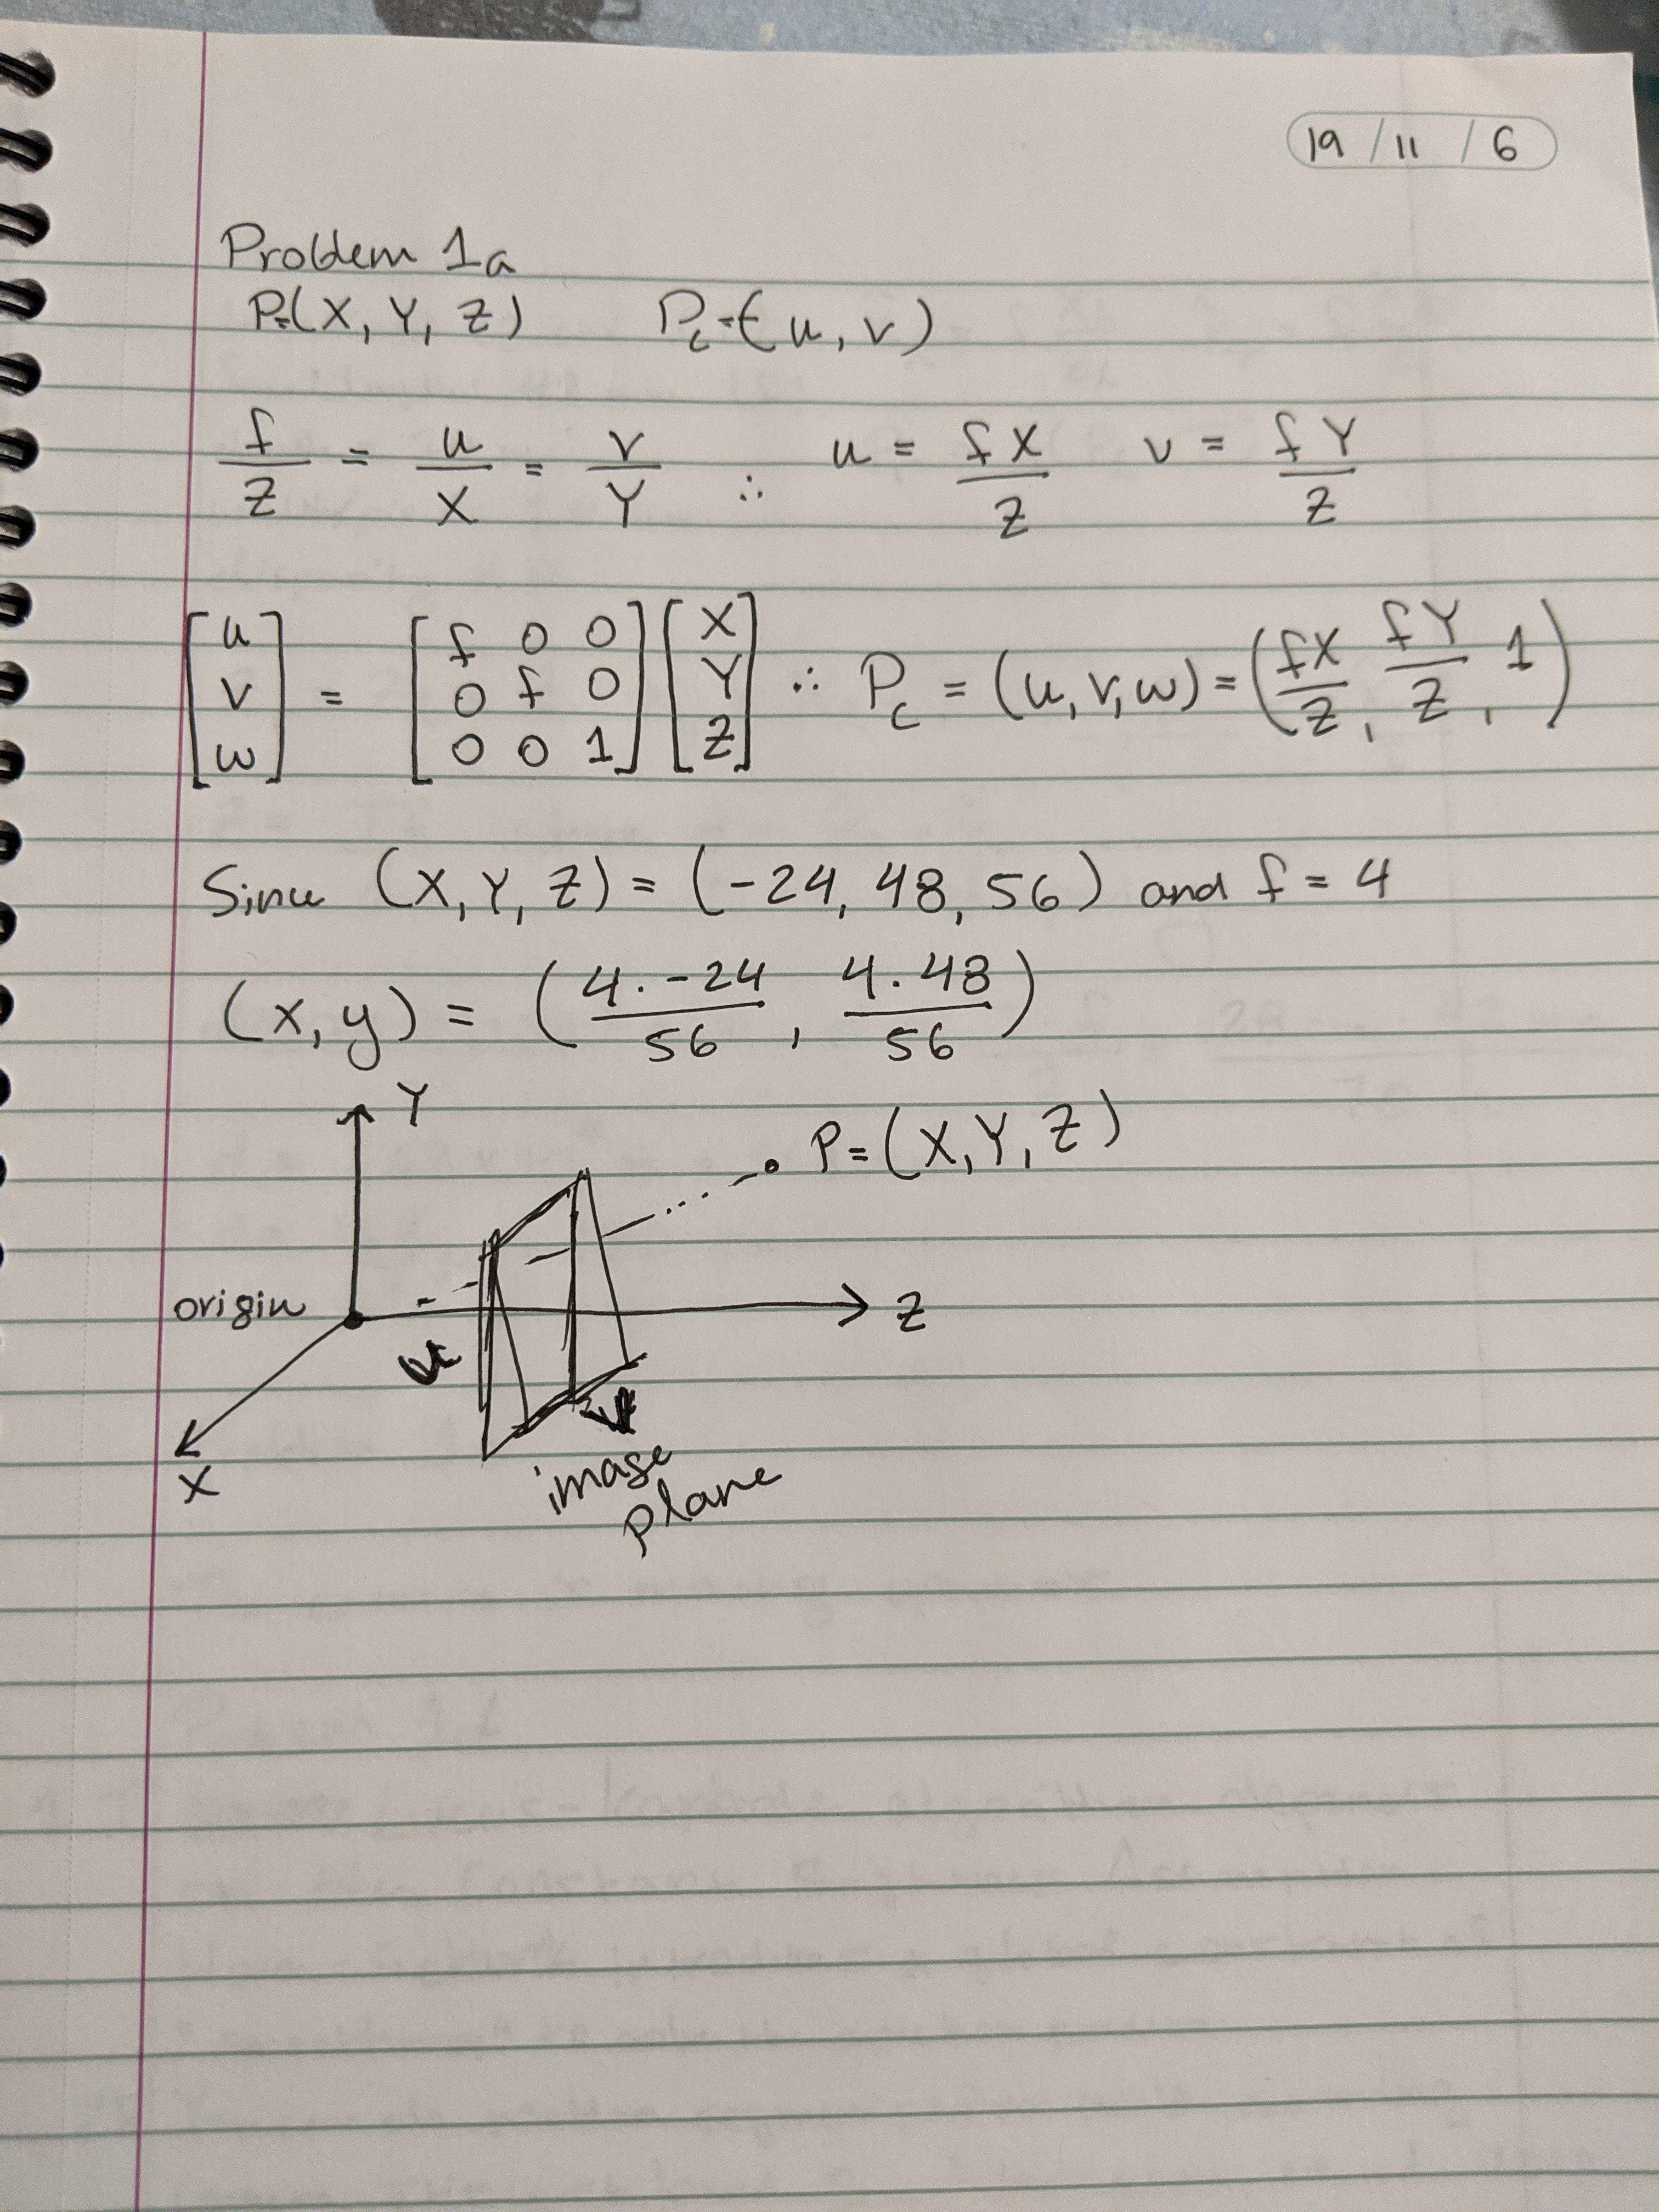 19 / 11 / 6
Problem 1a
P=(X, Y, Z) Pc=(u, v)
f/Z = u/X = v/Y ∴ u = fX/Z v = fY/Z
[u v w] = [f 0 0; 0 f 0; 0 0 1] [X Y Z] ∴ Pc = (u, v, w) = (fX/Z, fY/Z, 1)
Since (X, Y, Z) = (-24, 48, 56) and f = 4
(x, y) = (4·-24/56, 4·48/56)
Y
P=(X, Y, Z)
origin
Z
u
v
X
image
plane